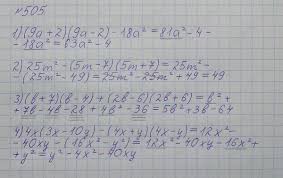 №505
1)(9a+2)(9a-2)-18a²=81a²-4-
-18a²=63a²-4
2) 25m²-(5m-7)(5m+7)=25m²-
-(25m²-49)=25m²-25m²+49=49
3)(b+7)(b-4)+(2b-6)(2b+6)=b²+
+7b-4b-28+4b²-36=5b²+3b-64
4)4x(3x-10y)-(4x+y)(4x-y)=12x²-
-40xy-(16x²-y²)=12x²-40xy-16x²+
+y²=y²-4x²-40xy